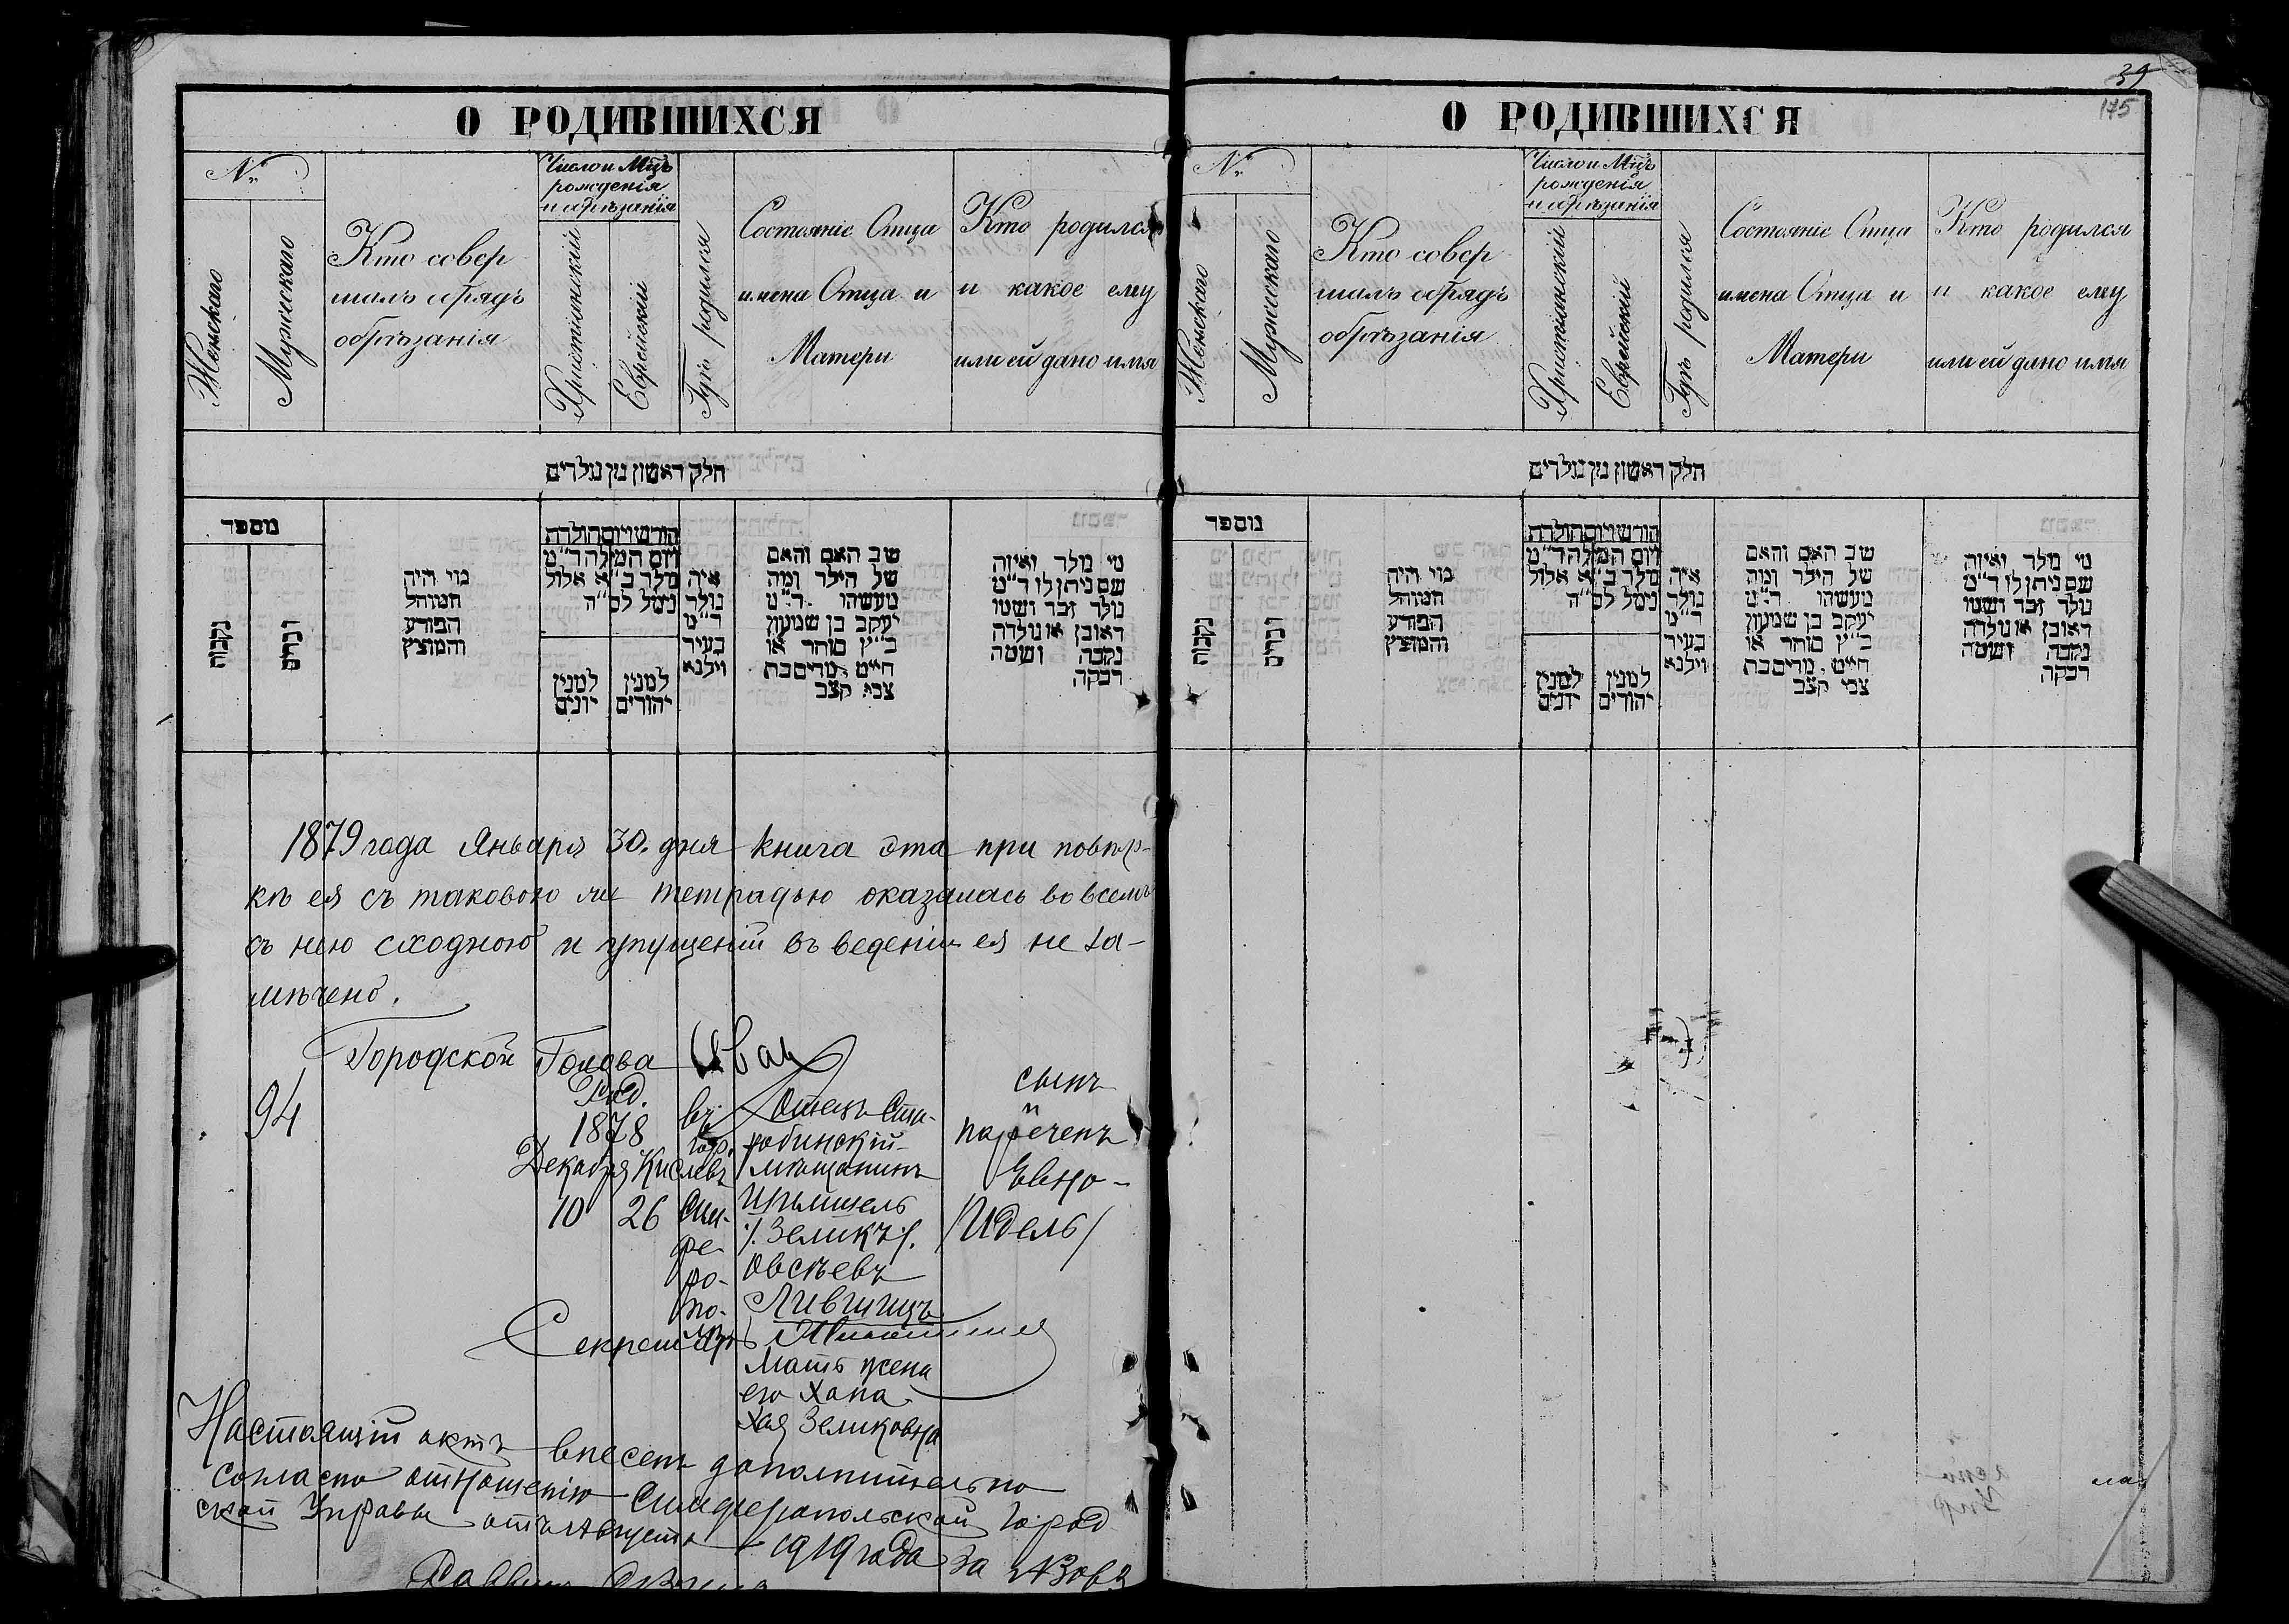 39
175
О РОДИВШИХСЯ
№
Женскаго
Мужескаго
Кто совер
шалъ обрядъ
обрѣзанія
Число и Мцъ
рожденія
и обрѣзанія
Христіянскій
Еврейскій
Гдѣ родился
Состояніе Отца
имена Отца и
Матери
Кто родился
и какое ему
или ей дано имя
חלק ראשון מן נולדים
מספר
נקבות
זכרים
מי היה
המוהל
הפורע
והמוצץ
חודש ויום הולדת
ויום המילה ד״מ
נולד ב״א אלול
נימל לס״ה
למנין
יונים
למנין
יהודים
איה
נולד
ד״מ
בעיר
וילנא
שב האב והאם
של הילד ומה
מעשהו ד״מ
יעקב בן שמעון
כ״ץ סוחר או
חייט, מרים בת
צבי קצב
מי נולד ואיזה
שם ניתן לו ד״מ
נולד זכר ושמו
ראובן או נולדה
נקבה ושמה
רבקה
1879 года Января 30. дня книга эта при повѣр-
кѣ ея съ таковою же тетрадью оказалась во всемъ
съ нею сходною и упущеній въ веденіи ея не за-
мѣчено.
Городской Голова Иван
94
Род.
1878
Декабря Кислевъ
10 26
въ
гор.
Сим-
фе-
ро-
по-
лѣ
Отецъ Ста-
робинскій
мѣщанинъ
Ирьмиель
/. Зеликъ /.
Овсѣевъ
Лившицъ
Мать жена
его Хана
Хая Зеликовна
сынъ
нареченъ
Евно-
/Идель/
Секретарь
Настоящій актъ внесенъ дополнительно
согласно отношенію Симферопольской Город
ской Управы отъ Августа 1919 года за №
Раввинъ
О РОДИВШИХСЯ
№
Женскаго
Мужескаго
Кто совер
шалъ обрядъ
обрѣзанія
Число и Мцъ
рожденія
и обрѣзанія
Христіянскій
Еврейскій
Гдѣ родился
Состояніе Отца
имена Отца и
Матери
Кто родился
и какое ему
или ей дано имя
חלק ראשון מן נולדים
מספר
נקבות
זכרים
מי היה
המוהל
הפורע
והמוצץ
חודש ויום הולדת
ויום המילה ד״מ
נולד ב״א אלול
נימל לס״ה
למנין
יונים
למנין
יהודים
איה
נולד
ד״מ
בעיר
וילנא
שב האב והאם
של הילד ומה
מעשהו ד״מ
יעקב בן שמעון
כ״ץ סוחר או
חייט, מרים בת
צבי קצב
מי נולד ואיזה
שם ניתן לו ד״מ
נולד זכר ושמו
ראובן או נולדה
נקבה ושמה
רבקה